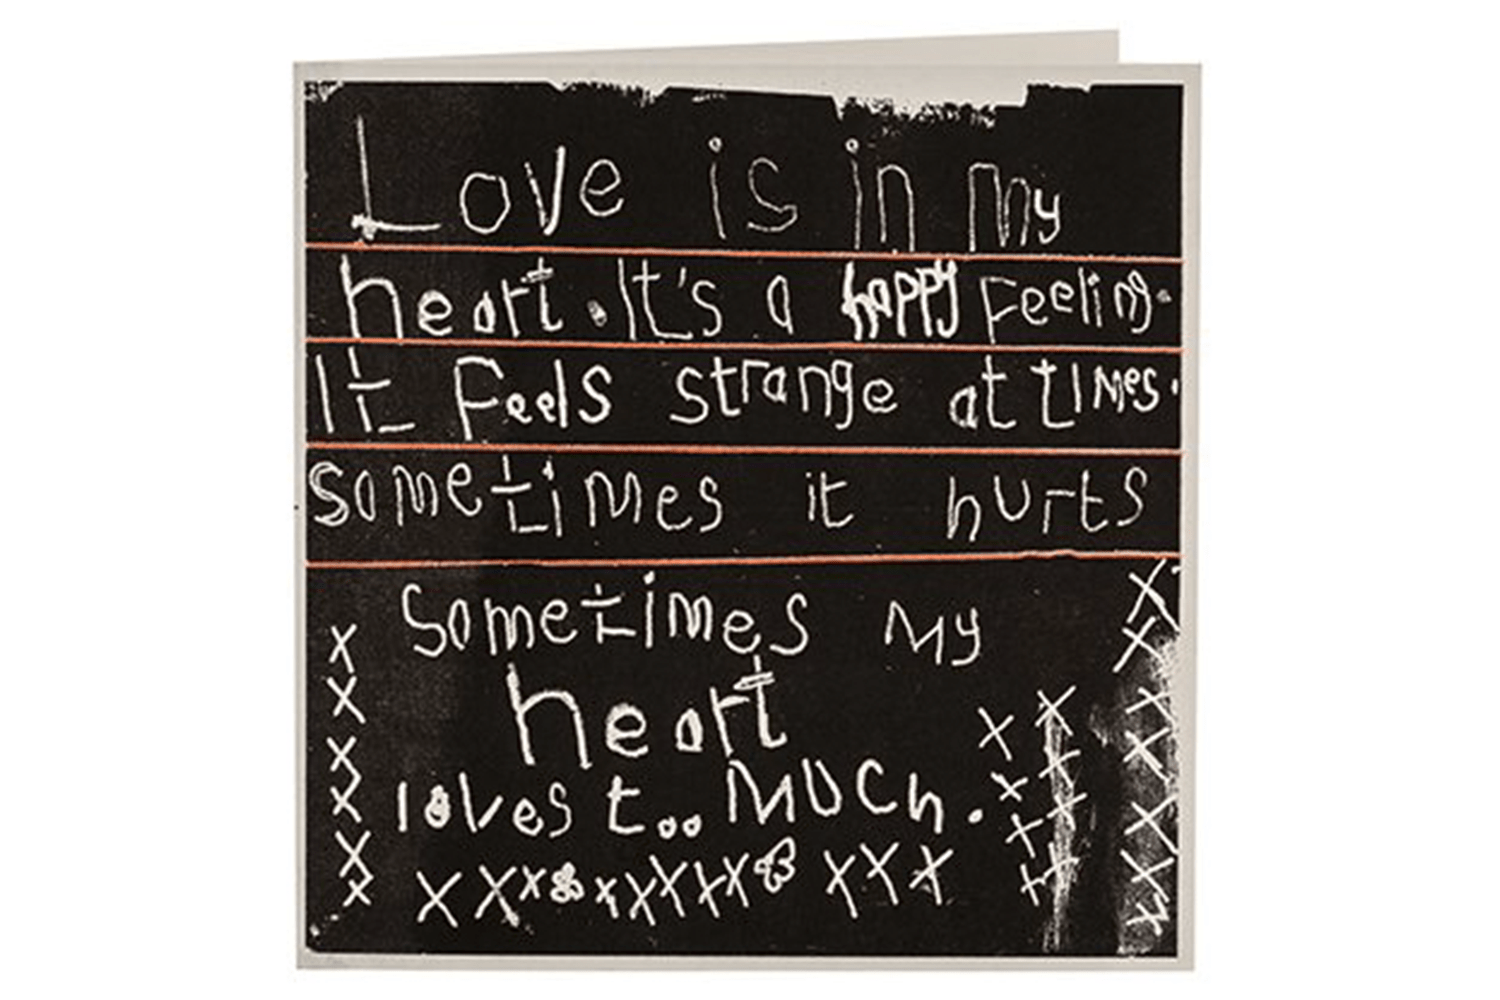 Love is in my
heart. It's a happy feeling.
It feels strange at times.
sometimes it hurts
sometimes my
heart
loves too much.
x x x x x x x x x x x